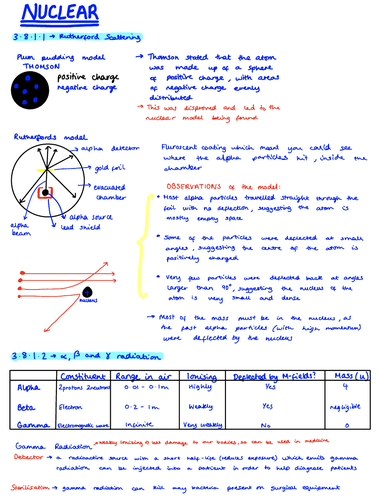 NUCLEAR
3.8.1.1 → Rutherford Scattering
Plum pudding model
THOMSON
positive charge
negative charge
→ Thomson stated that the atom
was made up of a sphere
of positive charge, with areas
of negative charge evenly
distributed
→ This was disproved and led to the
nuclear model being found
Rutherfords model
alpha detector
gold foil
evacuated
chamber
alpha source
lead shield
alpha
beam
Flurescent coating which meant you could see
where the alpha particles hit, inside the
chamber
OBSERVATIONS of the model:
• Most alpha particles travelled straight through the
foil with no deflection, suggesting the atom is
mostly empty space
• Some of the particles were deflected at small
angles, suggesting the centre of the atom is
positively charged
• Very few particles were deflected back at angles
larger than 90°, suggesting the nucleus of the
atom is very small and dense
→ Most of the mass must be in the nucleus, as
the fast alpha particles (with high momentum)
were deflected by the nucleus
nucleus
3.8.1.2 → α, β and γ radiation
Constituent Range in air Ionising Deflected by M-fields? Mass (u)
Alpha 2protons 2neutrons 0.01 - 0.1m Highly Yes 4
Beta Electron 0.2 - 1m Weakly Yes negligible
Gamma Electromagnetic wave Infinite Very weakly No 0
Gamma Radiation → weakly ionising & less damage to our bodies, so can be used in medicine
Detector → a radioactive source with a short half-life (reduces exposure) which emits gamma
radiation can be injected into a patient in order to help diagnose patients
Sterilisation → gamma radiation can kill any bacteria present on surgical equipment